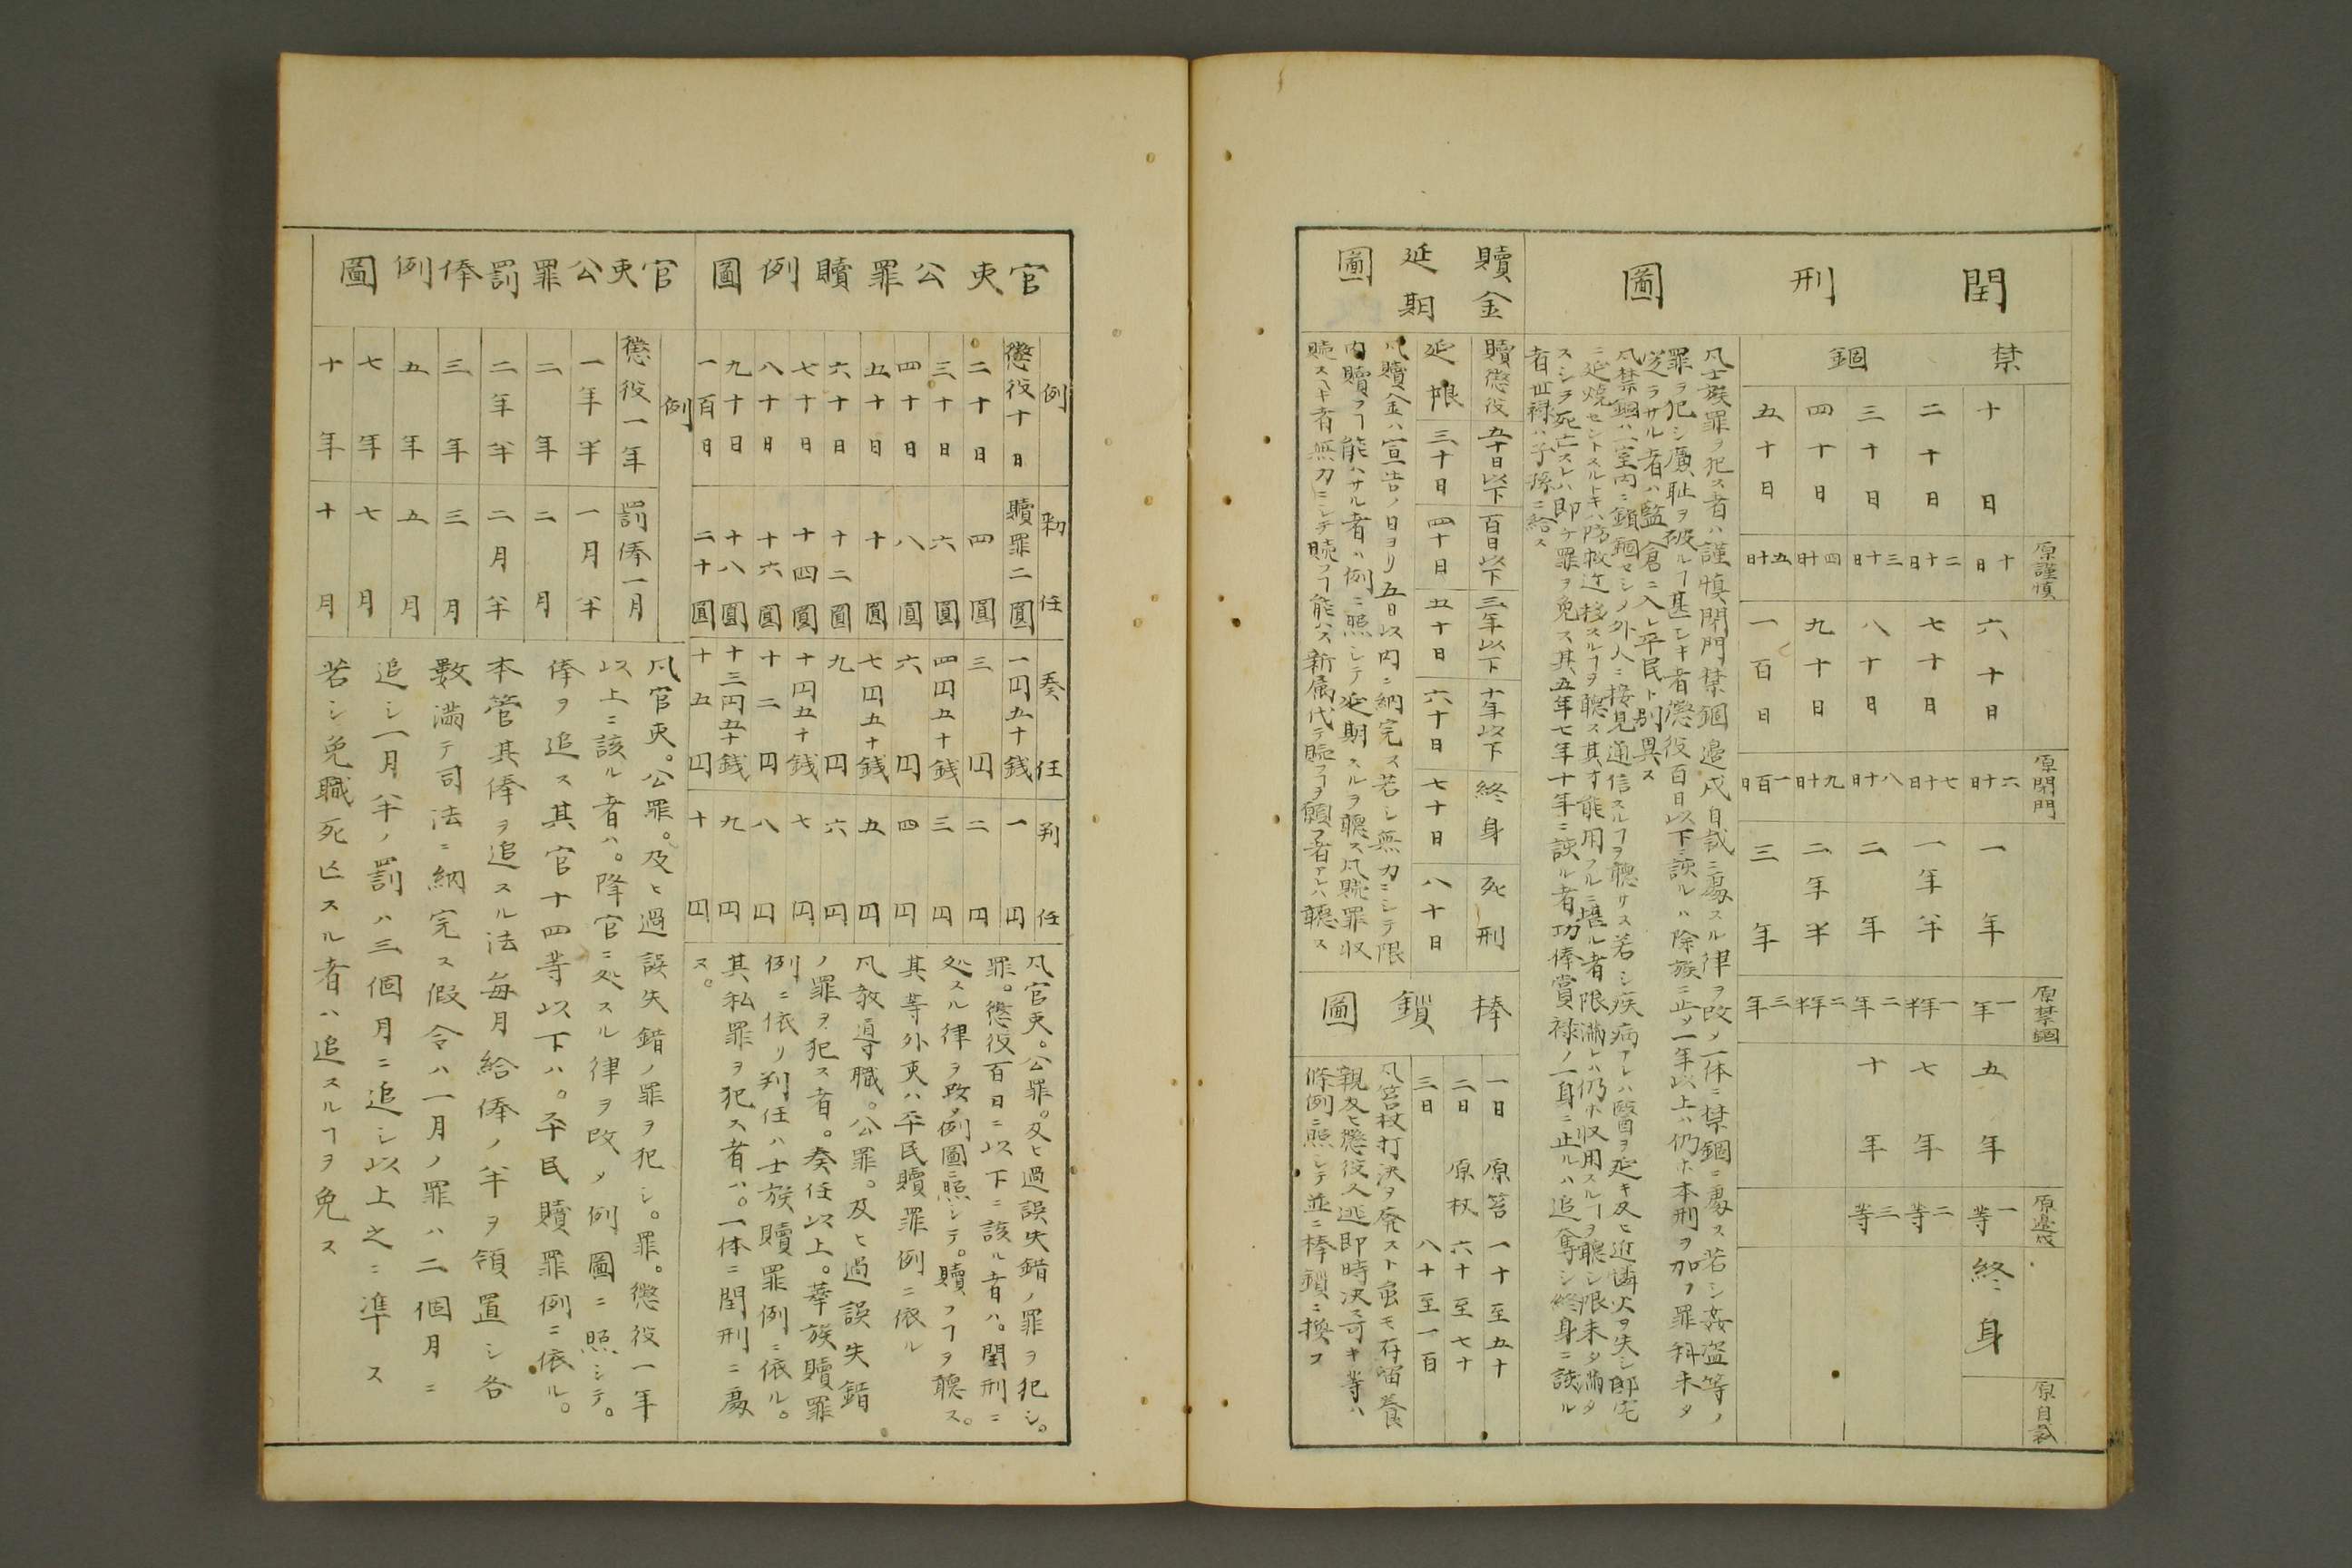 閏刑圖
禁錮
十日
二十日
三十日
四十日
五十日
原謹慎
十日
二十日
三十日
四十日
五十日
六十日
七十日
八十日
九十日
一百日
原閉門
六十日
七十日
八十日
九十日
一百日
一年
一年半
二年
二年半
三年
原禁錮
一年
一年半
二年
二年半
三年
五年
七年
十年
原邊戍
一等
二等
三等
終身
原自裁
凡士族罪ヲ犯ス者ハ謹慎閉門禁錮邊戍自裁ニ處スル律ヲ改メ一体ニ禁錮ニ處ス若シ姦盗等ノ
罪ヲ犯シ廉耻ヲ破ルヿ甚シキ者懲役百日以下ニ該ルハ除族ニ止メ一年以上ハ仍ホ本刑ヲ加フ罪科未タ
定ラサル者ハ監倉ニ入レ平民ト別異ス
凡禁錮ハ一室内ニ鎖錮セシメ外人ニ接見通信スルヿヲ聽サス若シ疾病アレハ醫ヲ延キ及ヒ近憐火ヲ失シ邸宅
ニ延焼セントスルトキハ防救近移スルヿヲ聽ス其才能用フルニ堪ル者限満レハ仍ホ収用スルヿヲ聽シ限未タ満タ
スシテ死亡スレハ即ケ罪ヲ免ス其五年七年十年ニ該ル者功俸賞禄ノ一身ニ止ルハ追奪シ終身ニ該ル
者世禄ハ子孫ニ給ス
贖金延期圖
贖懲役
五十日以下
百日以下
三年以下
十年以下
終身
死刑
延限
三十日
四十日
五十日
六十日
七十日
八十日
凡贖金ハ宣告ノ日ヨリ五日以内ニ納完ス若シ無力ニシテ限
内贖フヿ能ハサル者ハ例ニ照シテ延期スルヲ聽ス凡贖罪収
贖スヘキ者無力ニシテ贖フヿ能ハス新属代テ贖フヿヲ願フ者アレハ聽ス
棒鎖圖
一日 原笞 一十至五十
二日 原杖 六十至七十
三日 八十至一百
凡笞杖打決ヲ廃スト虽モ存留養
親及ヒ懲役人逃即時決ス可キ等ハ
條例ニ照シテ並ニ棒鎖ニ換フ
官吏公罪贖例圖
例
勅任
奏任
判任
懲役十日 贖罪二圓 一円五十銭 一円
二十日 四圓 三円 二円
三十日 六圓 四円五十銭 三円
四十日 八圓 六円 四円
五十日 十圓 七円五十銭 五円
六十日 十二圓 九円 六円
七十日 十四圓 十円五十銭 七円
八十日 十六圓 十二円 八円
九十日 十八圓 十三円五十銭 九円
一百日 二十圓 十五円 十円
凡官吏。公罪。及ヒ過誤失錯ノ罪ヲ犯シ。
罪。懲役百日ニ以下ニ該ル者ハ。閏刑ニ
処スル律ヲ改メ例圖ニ照シテ。贖フヿヲ聽ス。
其等外吏ハ平民贖罪例ニ依ル
凡教導職。公罪。及ヒ過誤失錯
ノ罪ヲ犯ス者。奏任以上。華族贖罪
例ニ依リ判任ハ士族贖罪例ニ依ル。
其私罪ヲ犯ス者ハ。一体ニ閏刑ニ處
ス。
官吏公罪罰俸例圖
例
懲役一年 罰俸一月
一年半 一月半
二年 二月
二年半 二月半
三年 三月
五年 五月
七年 七月
十年 十月
凡官吏。公罪。及ヒ過誤失錯ノ罪ヲ犯シ。罪。懲役一年
以上ニ該ル者ハ。降官ニ処スル律ヲ改メ例圖ニ照シテ。
俸ヲ追ス其官十四等以下ハ。平民贖罪例ニ依ル。
本管其俸ヲ追スル法毎月給俸ノ半ヲ領置シ各
數満テ司法ニ納完ス假令ハ一月ノ罪ハ二個月ニ
追シ一月半ノ罰ハ三個月ニ追シ以上之ニ準ス
若シ免職死亡スル者ハ追スルヿヲ免ス